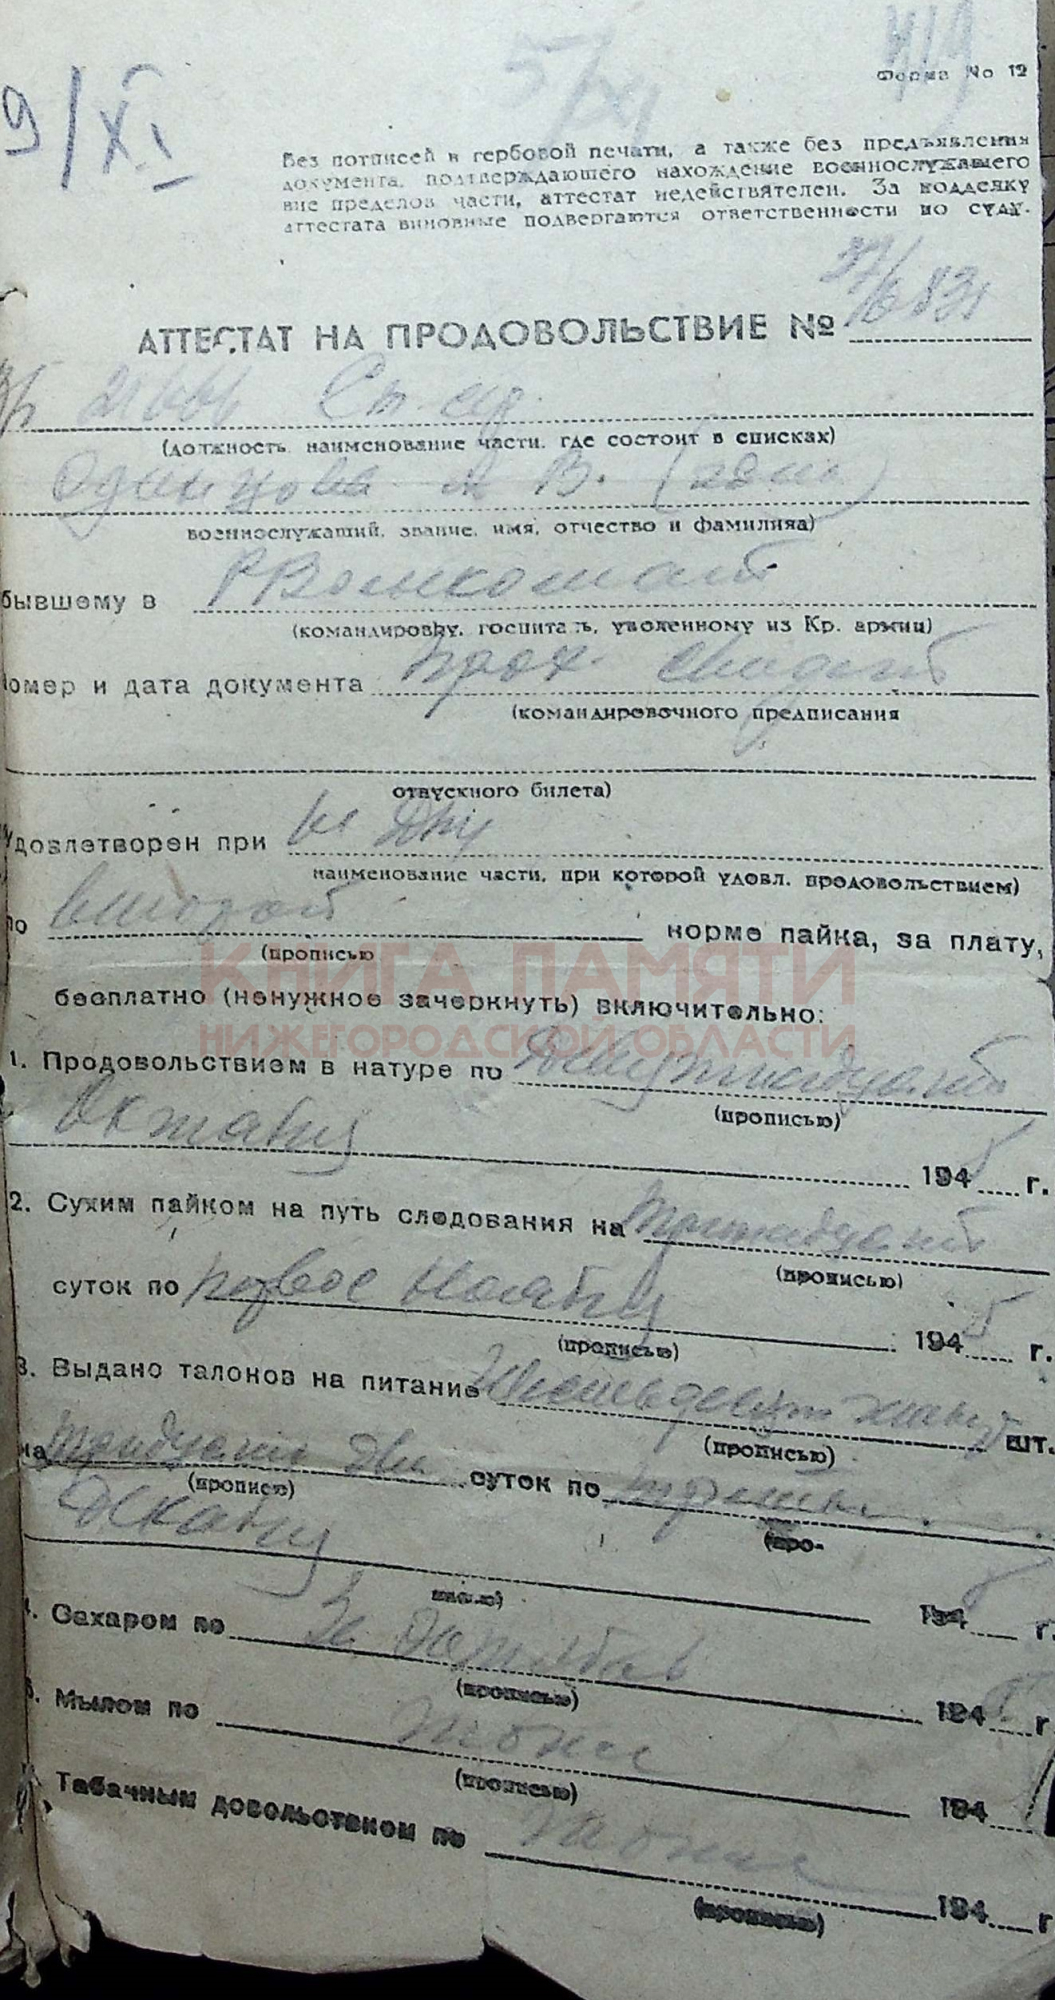 Форма No 12
9/XI
5/XI
Без подписей и гербовой печати, а также без предъявления
документа, подтверждающего нахождение военнослужащего
вне пределов части, аттестат недействителен. За подделку
аттестата виновные подвергаются ответственности по суду.
АТТЕСТАТ НА ПРОДОВОЛЬСТВИЕ №
21666
(должность, наименование части, где состоит в списках)
Одинцова В.
военнослужащий, звание, имя, отчество и фамилияа)
бывшему в РВоенкомат
(командировку, госпиталь, уволенному из Кр. армии)
омер и дата документа прох. свидет
(командировочного предписания
отпускного билета)
довлетворен при
наименование части, при которой удовл. продовольствием)
по второй норме пайка, за плату,
(прописью
КНИГА ПАМЯТИ
бесплатно (ненужное зачеркнуть) включительно:
НИЖЕГОРОДСКОЙ ОБЛАСТИ
1. Продовольствием в натуре по Девятнадцат
(прописью)
Октября 1945 г.
2. Сухим пайком на путь следования на тринадцать
(прописью)
суток по первое Ноября 1945 г.
(прописью)
3. Выдано талонов на питание шт.
(прописью)
на тридцать два суток по
(прописю) (про-
Декабря 194 г.
писью)
4. Сахаром по 194 г
(прописью)
5. Мылом по 194 г
(прописью)
Табачным довольствием по 194 г
(прописью)